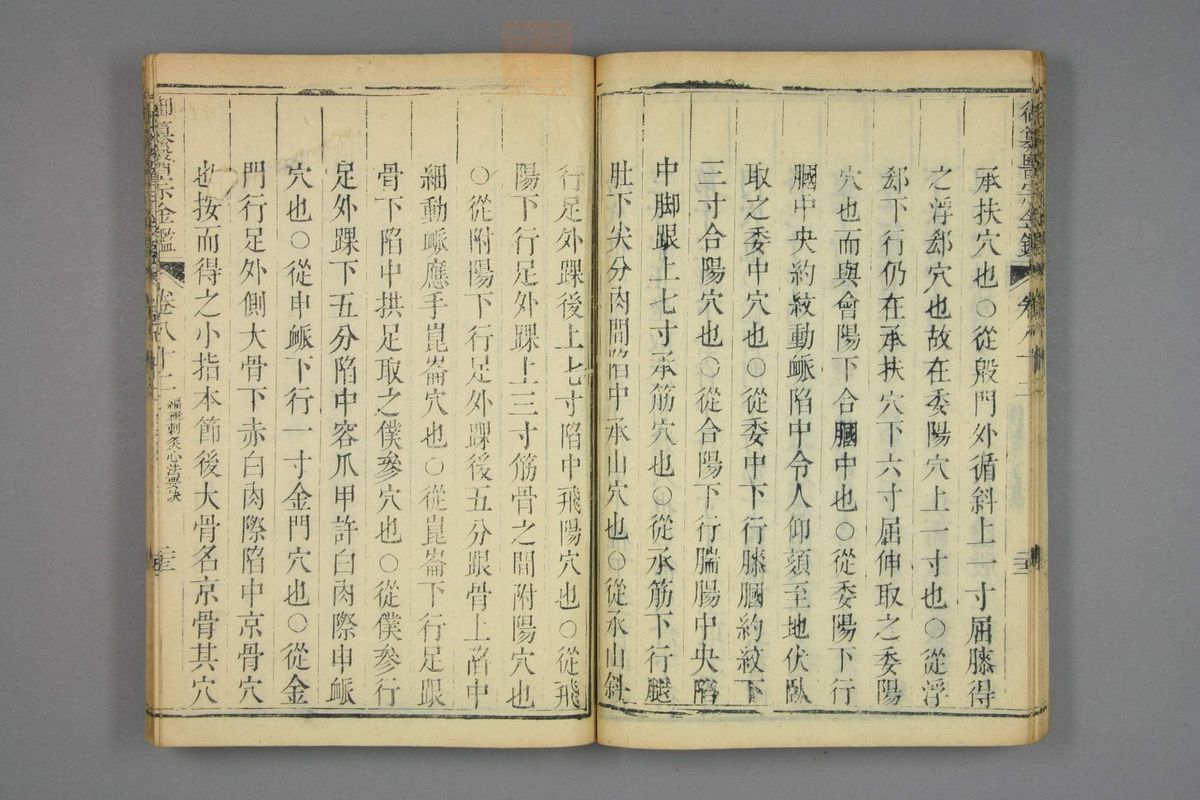 御纂醫宗金鑑
承扶穴也○從殷門外循斜上一寸屈膝得
之浮郄穴也故在委陽穴上一寸也○從浮
郄下行仍在承扶穴下六寸屈伸取之委陽
穴也而與會陽下合膕中也○從委陽下行
膕中央約紋動䘑陷中令人仰頦至地伏臥
取之委中穴也○從委中下行膝膕約紋下
三寸合陽穴也○從合陽下行腨腸中央陷
中脚跟上七寸承筋穴也○從承筋下行腿
肚下尖分肉間陷中承山穴也○從承山斜
行足外踝後上七寸陷中飛陽穴也○從飛
陽下行足外踝上三寸筋骨之間附陽穴也
○從附陽下行足外踝後五分跟骨上陷中
細動䘑應手崑崙穴也○從崑崙下行足跟
骨下陷中拱足取之僕參穴也○從僕參行
足外踝下五分陷中容爪甲許白肉際申䘑
穴也○從申䘑下行一寸金門穴也○從金
門行足外側大骨下赤白肉際陷中京骨穴
也按而得之小指本節後大骨名京骨其穴
御纂醫宗金鑑 卷八十二 編輯刺灸心法要訣